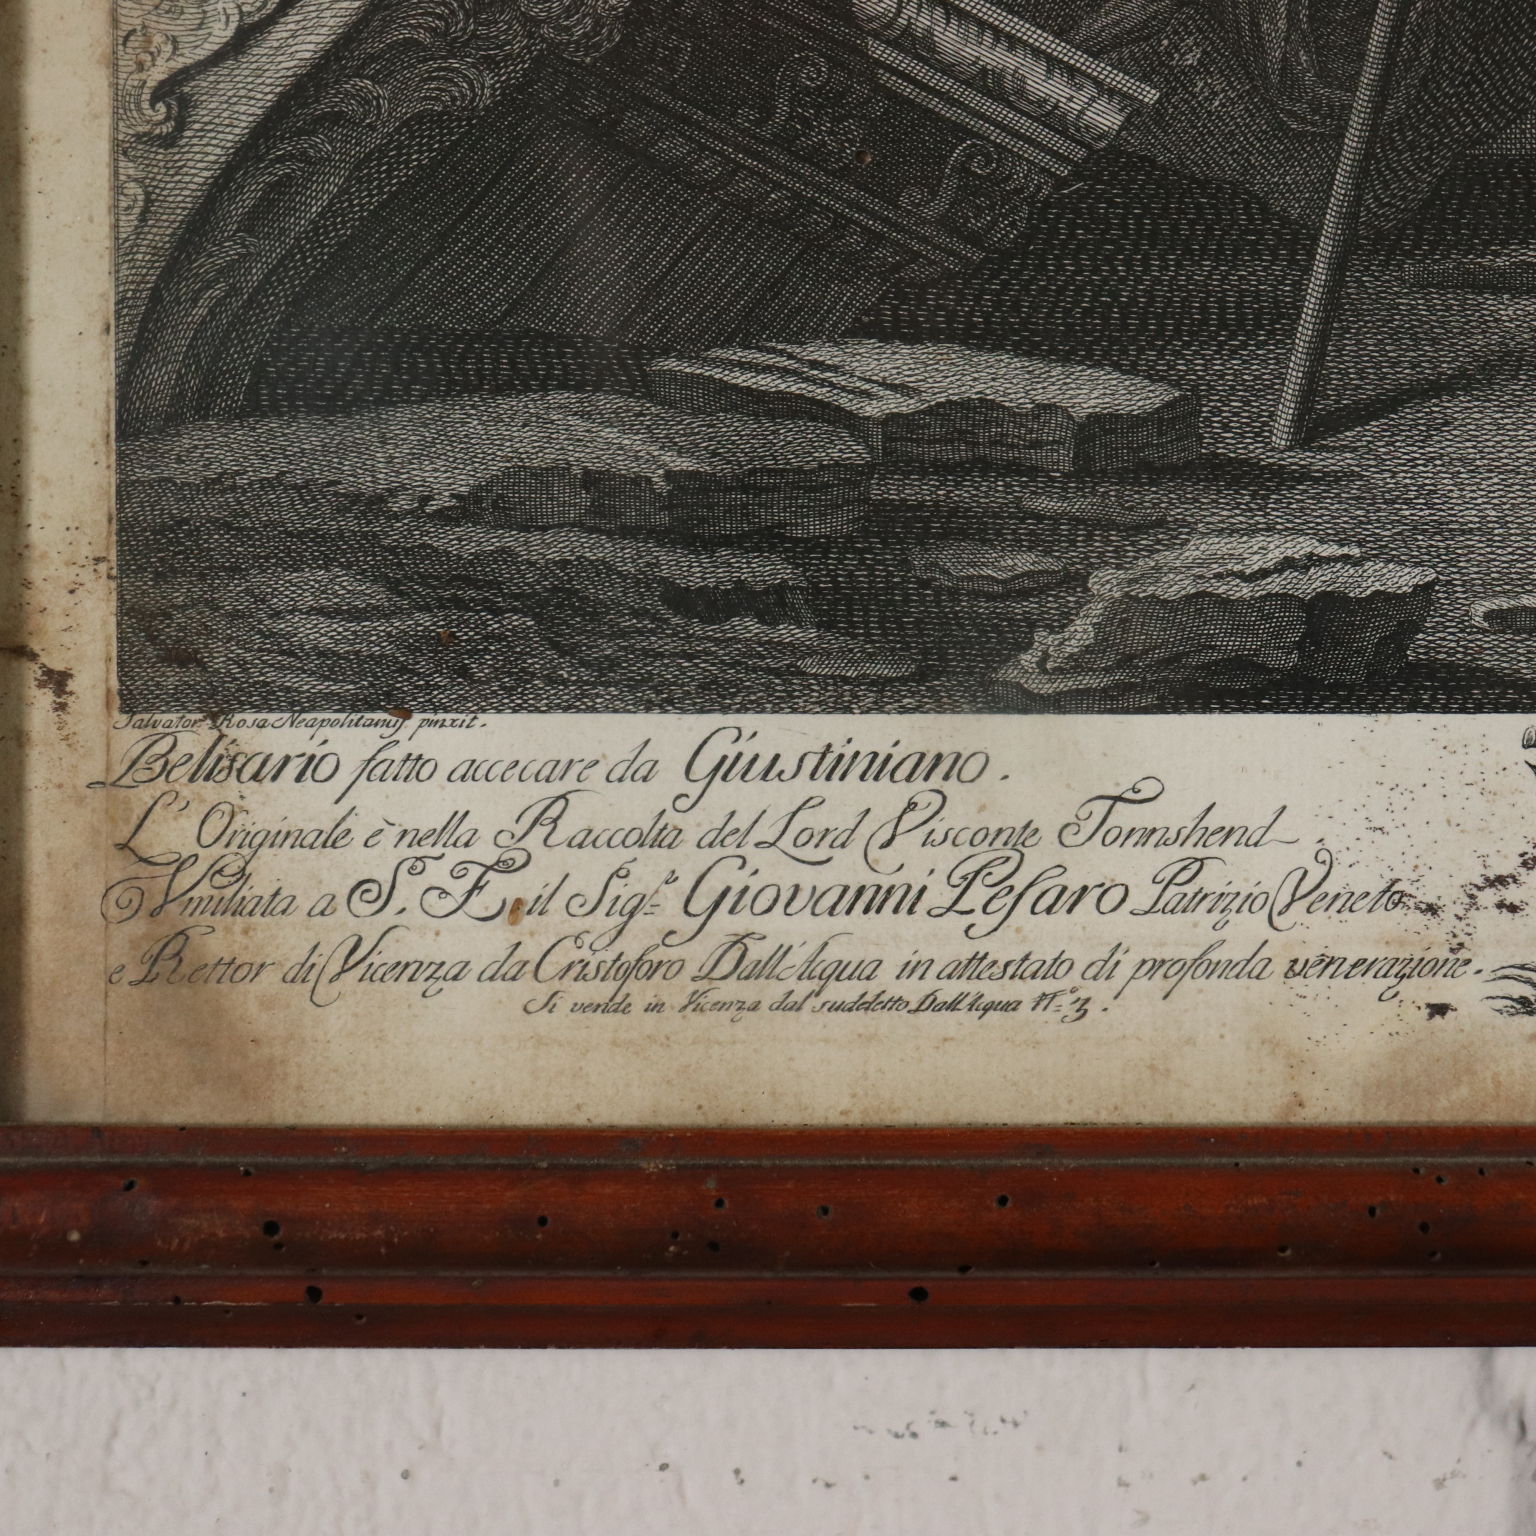 Salvator Rosa Neapolitanus pinxit.
Belisario fatto accecare da Giustiniano.
L' Originale è nella Raccolta del Lord Visconte Tonnshend
Vmiliata a S. E. il Sigr. Giovanni Pesaro Patrizio Veneto
e Rettor di Vicenza da Cristoforo Dall'Acqua in attestato di profonda venerazione.
Si vende in Vicenza dal sudeletto Dall'Acqua N.o 3.